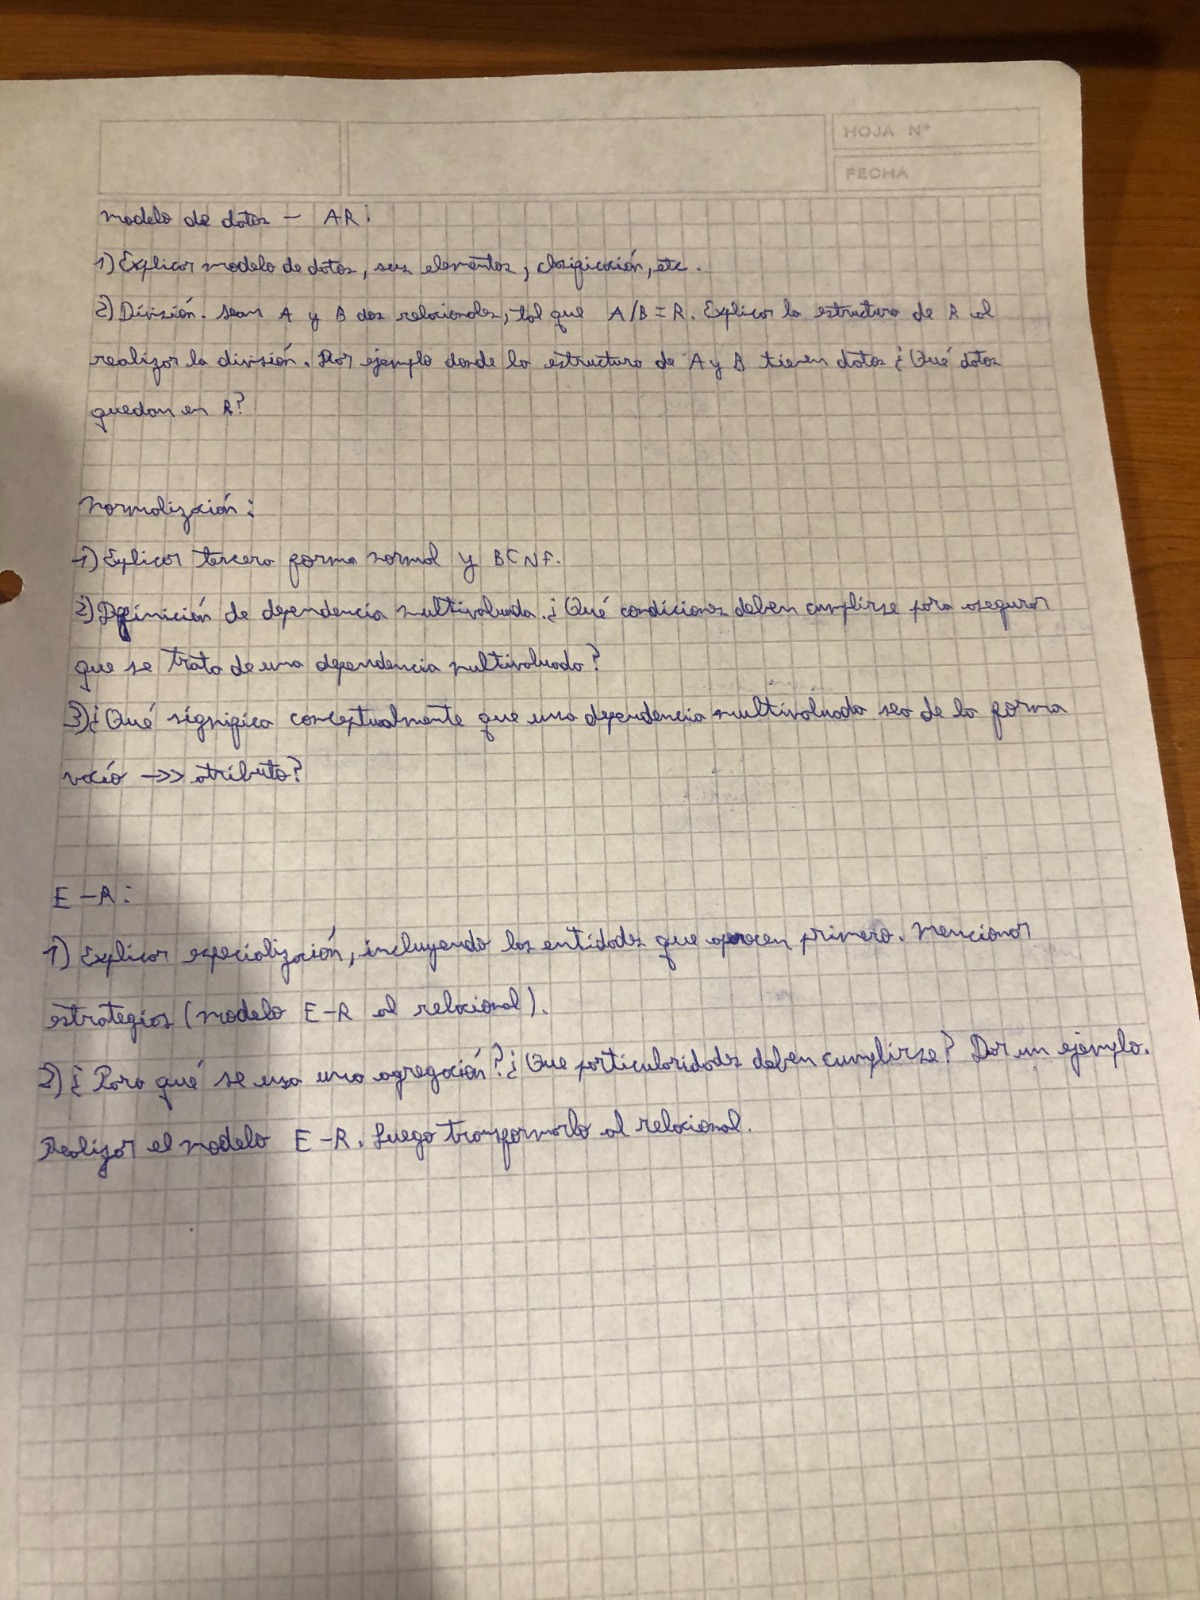 HOJA N°
FECHA
Modelo de datos - AR:
1) Explicar modelo de datos, sus elementos, clasificación, etc.
2) División. Sean A y B dos relacionales, tal que A/B = R. Explicar la estructura de R al
realizar la división. Dar ejemplo donde la estructura de A y B tienen datos ¿Qué datos
quedan en R?
Normalización:
1) Explicar tercera forma normal y BCNF.
2) Definición de dependencia multivaluada. ¿Qué condiciones deben cumplirse para asegurar
que se trata de una dependencia multivaluada?
3) ¿Qué significa conceptualmente que una dependencia multivaluada sea de la forma
vació ->> atributo?
E-R:
1) Explicar especialización, incluyendo las entidades que aparecen primero. Mencionar
estrategias (modelo E-R al relacional).
2) ¿Para qué se usa una agregación? ¿Que particularidades deben cumplirse? Dar un ejemplo.
Realizar el modelo E-R. Luego transformarlo al relacional.